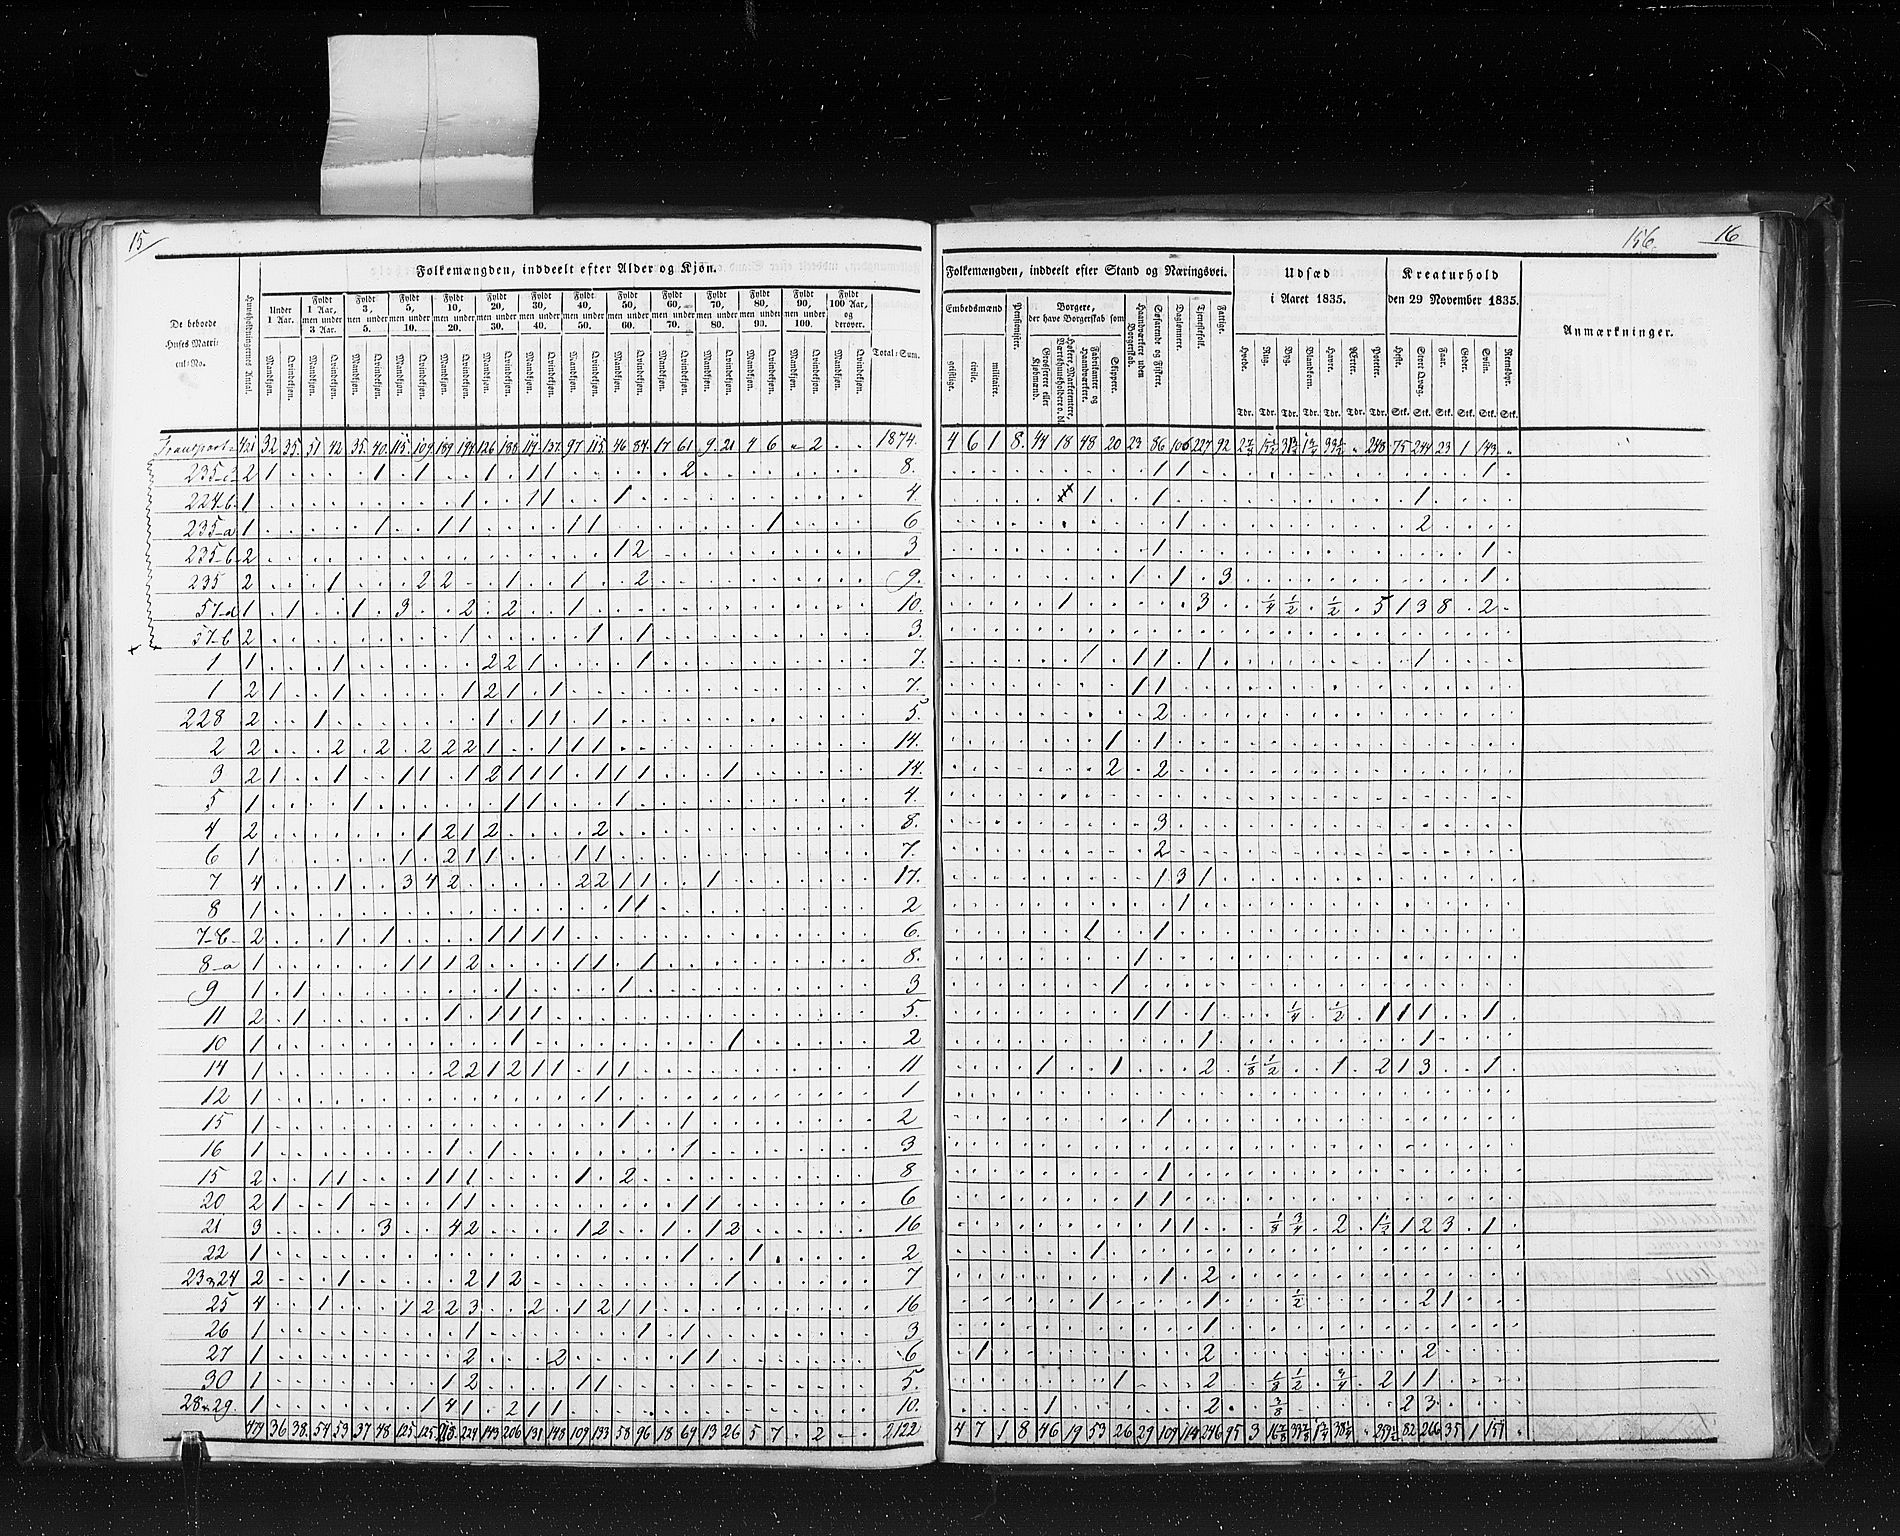 15
156.
16
Folkemængden, inddeelt efter Alder og Kjøn.
Folkemængden, inddeelt efter Stand og Næringsvei.
Udsæd i Aaret 1835.
Kreaturhold den 29 November 1835.
Anmærkninger.
De beboede Huses Matricul-No.
Huusholdningernes Antal.
Under 1 Aar.
Fyldt 1 Aar, men under 3 Aar.
Fyldt 3, men under 5.
Fyldt 5, men under 10.
Fyldt 10, men under 20.
Fyldt 20, men under 30.
Fyldt 30, men under 40.
Fyldt 40, men under 50.
Fyldt 50, men under 60.
Fyldt 60, men under 70.
Fyldt 70, men under 80.
Fyldt 80, men under 90.
Fyldt 90, men under 100.
Fyldt 100 Aar, og derover.
Total-Sum.
Mandkjøn. Qvindekjøn.
Embedsmænd
geistlige. civile. militaire.
Pensionister.
Borgere, der have Borgerskab som
Grosserere eller Kjøbmænd.
Høkere, Marketentere, Værtshuusholdere o. dl.
Fabrikanter og Haandværkere.
Skippere.
Haandværkere uden Borgerskab.
Søfarende og Fiskere.
Dagleiere.
Tjenestefolk.
Fattige.
Hvede. Rug. Byg. Blandkorn. Havre. Erter. Poteter.
Tdr. Tdr. Tdr. Tdr. Tdr. Tdr. Tdr.
Heste. Stort Qvæg. Faar. Geder. Sviin. Reensdyr.
Stk. Stk. Stk. Stk. Stk. Stk.
Transport 421 32 35 51 42 35 40 115 109 189 194 126 188 119 137 97 115 46 84 17 61 9 21 4 6 „ 2 . . 1874. 4 6 1 8 44 18 48 20 23 86 106 227 92 248 75 244 23 1 143 „
235-c 2 1 1 1 1 1 1 2 8. 1 1 1
224-b 1 1 1 1 1 4. 1 1 1
235-a 1 1 1 1 1 1 1 6 1 2
235-b 2 1 2 3 1 1
235 2 1 2 2 1 1 2 9. 1 1 3 1
57-a 1 1 1 3 2 2 1 10. 1 3 1/4 1/2 1/2 5 1 3 8 2
57-b 2 1 1 1 3.
1 1 1 2 2 1 1 7. 1 1 1 1 1
1 2 1 1 1 2 1 1 7. 1 1
228 2 1 1 1 1 1 5. 2
2 2 2 2 2 2 2 1 1 1 1 14. 1 1
3 2 1 1 1 1 1 2 1 1 1 1 1 1 1 14. 2 2
5 1 1 1 1 1 4.
4 2 1 2 1 2 2 8. 3
6 1 1 2 1 1 1 1 7. 2
7 4 1 3 4 2 2 2 1 1 1 17. 1 3 1
8 1 1 1 2 1
7-b 2 1 1 1 1 1 1 6. 1 1
8-a 1 1 1 1 2 1 1 1 8. 1
9 1 1 1 1 3 1
11 2 1 1 1 1 1 5. 1 1 1 1/4 1/2 1 1 1 1
10 1 1 1 2 1 1
14 1 2 2 1 2 1 1 1 1 11 1 1 2 1/8 1/2 1 2 1 3 1
12 1 1 1
15 1 1 1 2 1
16 1 1 1 1 3
15 2 1 1 1 1 1 1 2 8 1
20 2 1 1 1 1 1 1 6 1 1
21 3 3 4 2 1 2 1 1 2 16 1 1 1/8 3/4 2 1 1/2 1 2 3 1
22 1 1 1 2 1
23 & 24 2 1 2 1 2 1 7 1 2
25 4 1 1 2 2 3 2 1 2 1 1 16 1 1 1/2 2 1
26 1 1 1 1 3 1
27 1 2 2 1 1 6 1 2 2
30 1 1 2 1 1 5. 1 2 1/8 1/2 3/4 2 1 1
28 & 29. 1 1 4 1 2 1 1 10. 1 2 3/8 2 3
479 36 38 54 53 37 48 125 125 218 224 143 206 131 148 109 133 58 96 18 69 13 26 5 7 . 2 2122 4 7 1 8 46 19 53 26 29 109 114 246 95 3 259 1/2 82 266 35 1 151 „